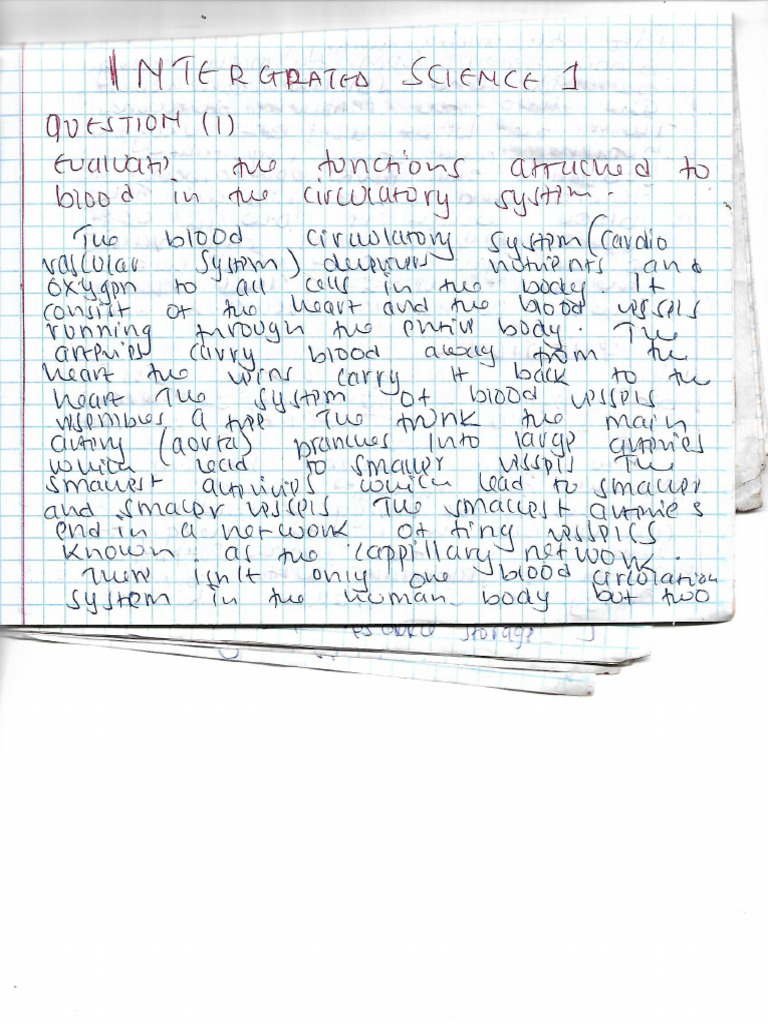 INTERGRATED SCIENCE 1
QUESTION (1)
Evaluate the functions attached to
blood in the circulatory system.
The blood circulatory system (Cardio
vascular system) delivers nutrients and
oxygen to all cells in the body. It
consist of the heart and the blood vessels
running through the entire body. The
arteries carry blood away from the
heart the veins carry it back to the
heart The system of blood vessels
resembles a tree The trunk the main
artery (aorta) branches into large arteries
which lead to smaller vessels The
smallest arteries which lead to smaller
and smaller vessels The smallest arteries
end in a network of tiny vessels
known as the cappillary network.
There isn't only one blood circulation
system in the human body but two
storage